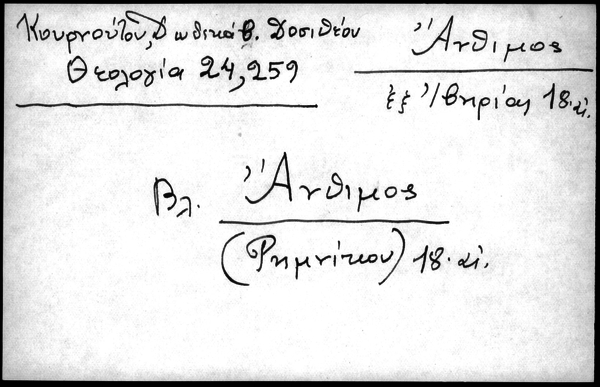 Κουρνούτου, Δωδεκάβ. Δοσιθέου
Θεολογία 24, 259
Ἄνθιμος
ἐξ Ἰβηρίας 18. αἰ.
Βλ. Ἄνθιμος
(Ρημνίκου) 18. αἰ.